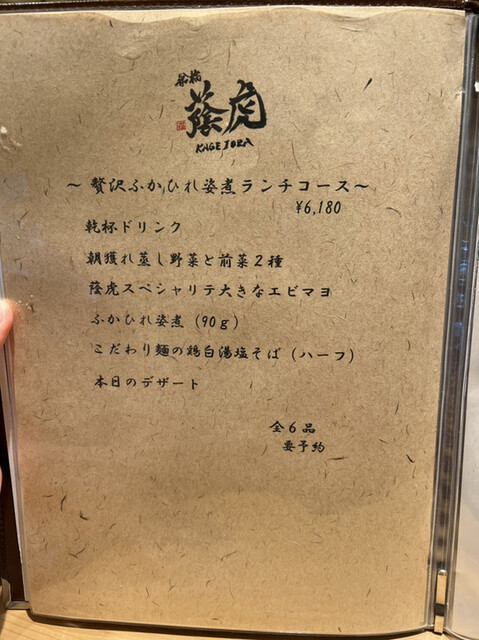 船橋
蔭虎
KAGETORA
～贅沢ふかひれ姿煮ランチコース～
¥6,180
乾杯ドリンク
朝獲れ蒸し野菜と前菜2種
蔭虎スペシャリテ大きなエビマヨ
ふかひれ姿煮(90g)
こだわり麺の鶏白湯塩そば(ハーフ)
本日のデザート
全6品
要予約